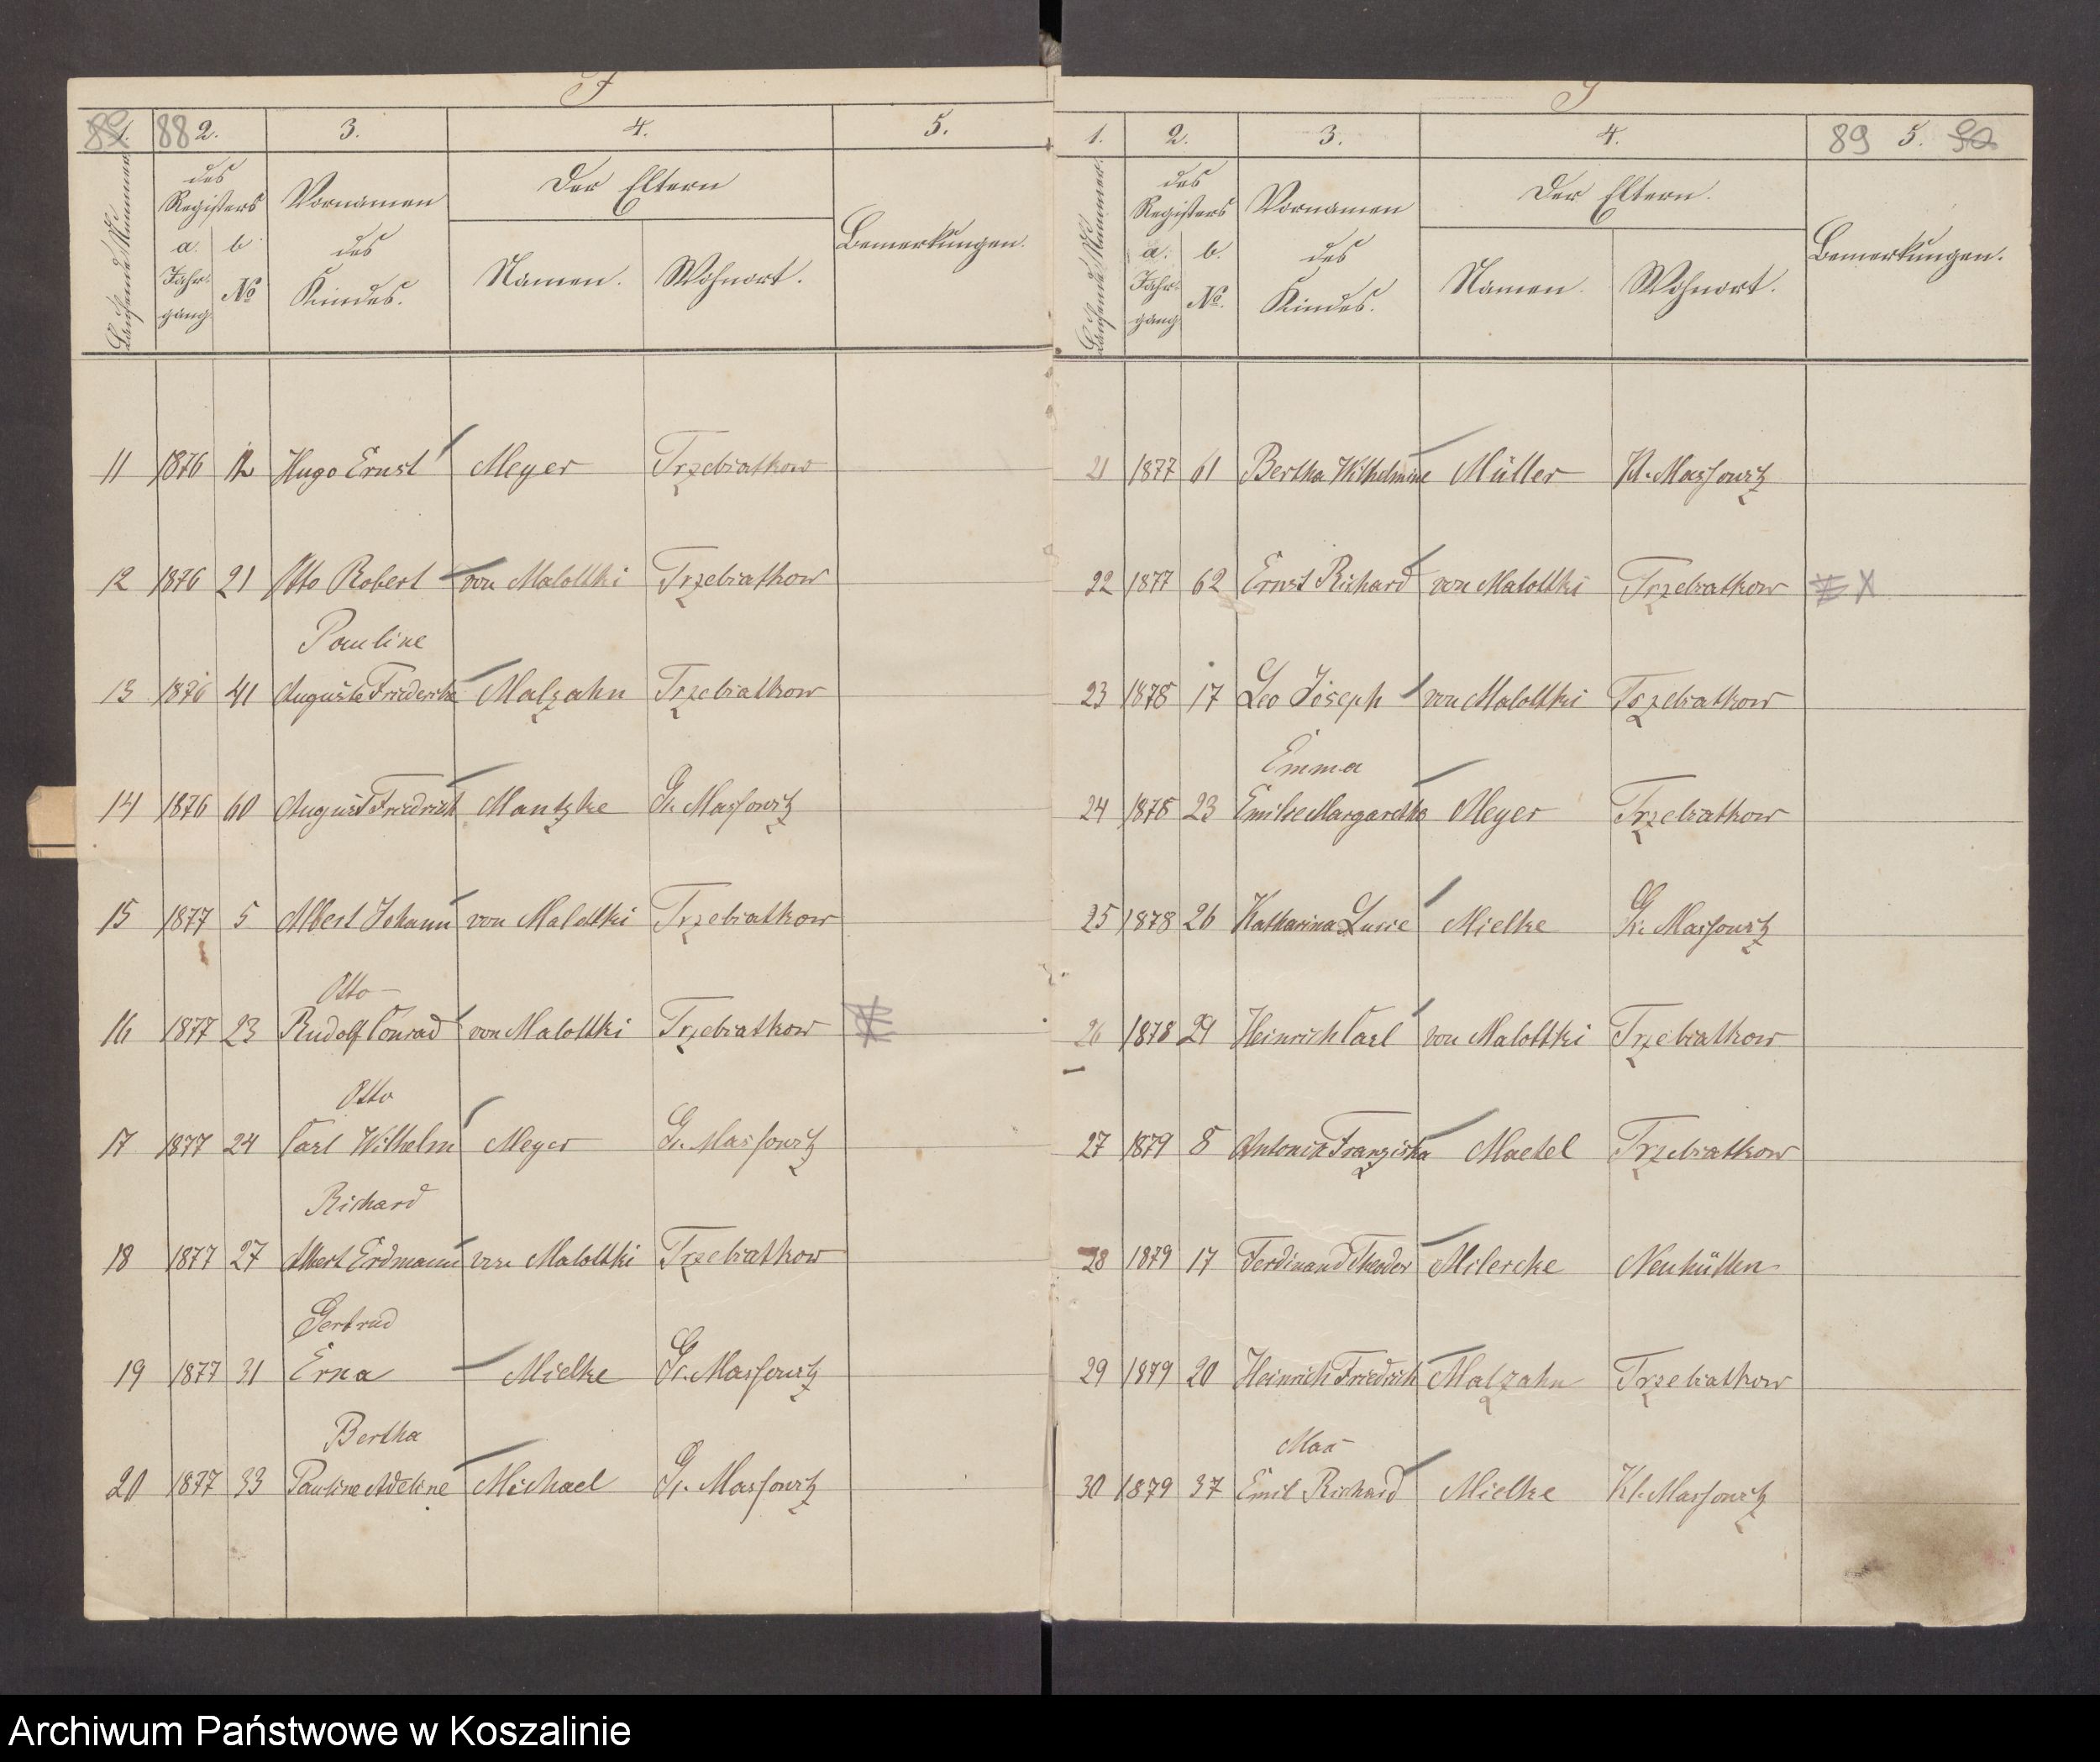 J
89 1. 88 2. 3. 4. 5.
Laufende Nummer.
des Registers
Vornamen des Kindes.
Der Eltern
Bemerkungen.
a. Jahrgang
b. No
Namen. Wohnort.
11 1876 12 Hugo Ernst Meyer Trzebiatkow
12 1876 21 Otto Robert von Malottki Trzebiatkow
Pauline
13 1876 41 Auguste Friederike Malzahn Trzebiatkow
14 1876 60 August Friedrich Mantzke Gr. Massowitz
15 1877 5 Albert Johann von Malottki Trzebiatkow
Otto
16 1877 23 Rudolf Conrad von Malottki Trzebiatkow
Otto
17 1877 24 Carl Wilhelm Meyer Gr. Massowitz
Richard
18 1877 27 Albert Erdmann von Malottki Trzebiatkow
Gertrud
19 1877 31 Erna Mielke Gr. Massowitz
Bertha
20 1877 33 Pauline Adeline Michael Gr. Massowitz
J
1. 2. 3. 4. 89 5. 90
Laufende Nummer.
des Registers
Vornamen des Kindes.
Der Eltern.
Bemerkungen.
a. Jahrgang
b. No.
Namen. Wohnort.
21 1877 61 Bertha Wilhelmine Müller Kl. Massowitz
22 1877 62 Ernst Richard von Malottki Trzebiatkow X
23 1878 17 Leo Joseph von Malottki Trzebiatkow
Emma
24 1878 23 Emilie Margarethe Meyer Trzebiatkow
25 1878 26 Katharina Lucie Mielke Gr. Massowitz
26 1878 29 Heinrich Carl von Malottki Trzebiatkow
27 1879 8 Antonie Franziska Maetel Trzebiatkow
28 1879 17 Ferdinand Theodor Milercke Neuhütten
29 1879 20 Heinrich Friedrich Malzahn Trzebiatkow
Max
30 1879 37 Emil Richard Mielke Kl. Massowitz
Archiwum Państwowe w Koszalinie